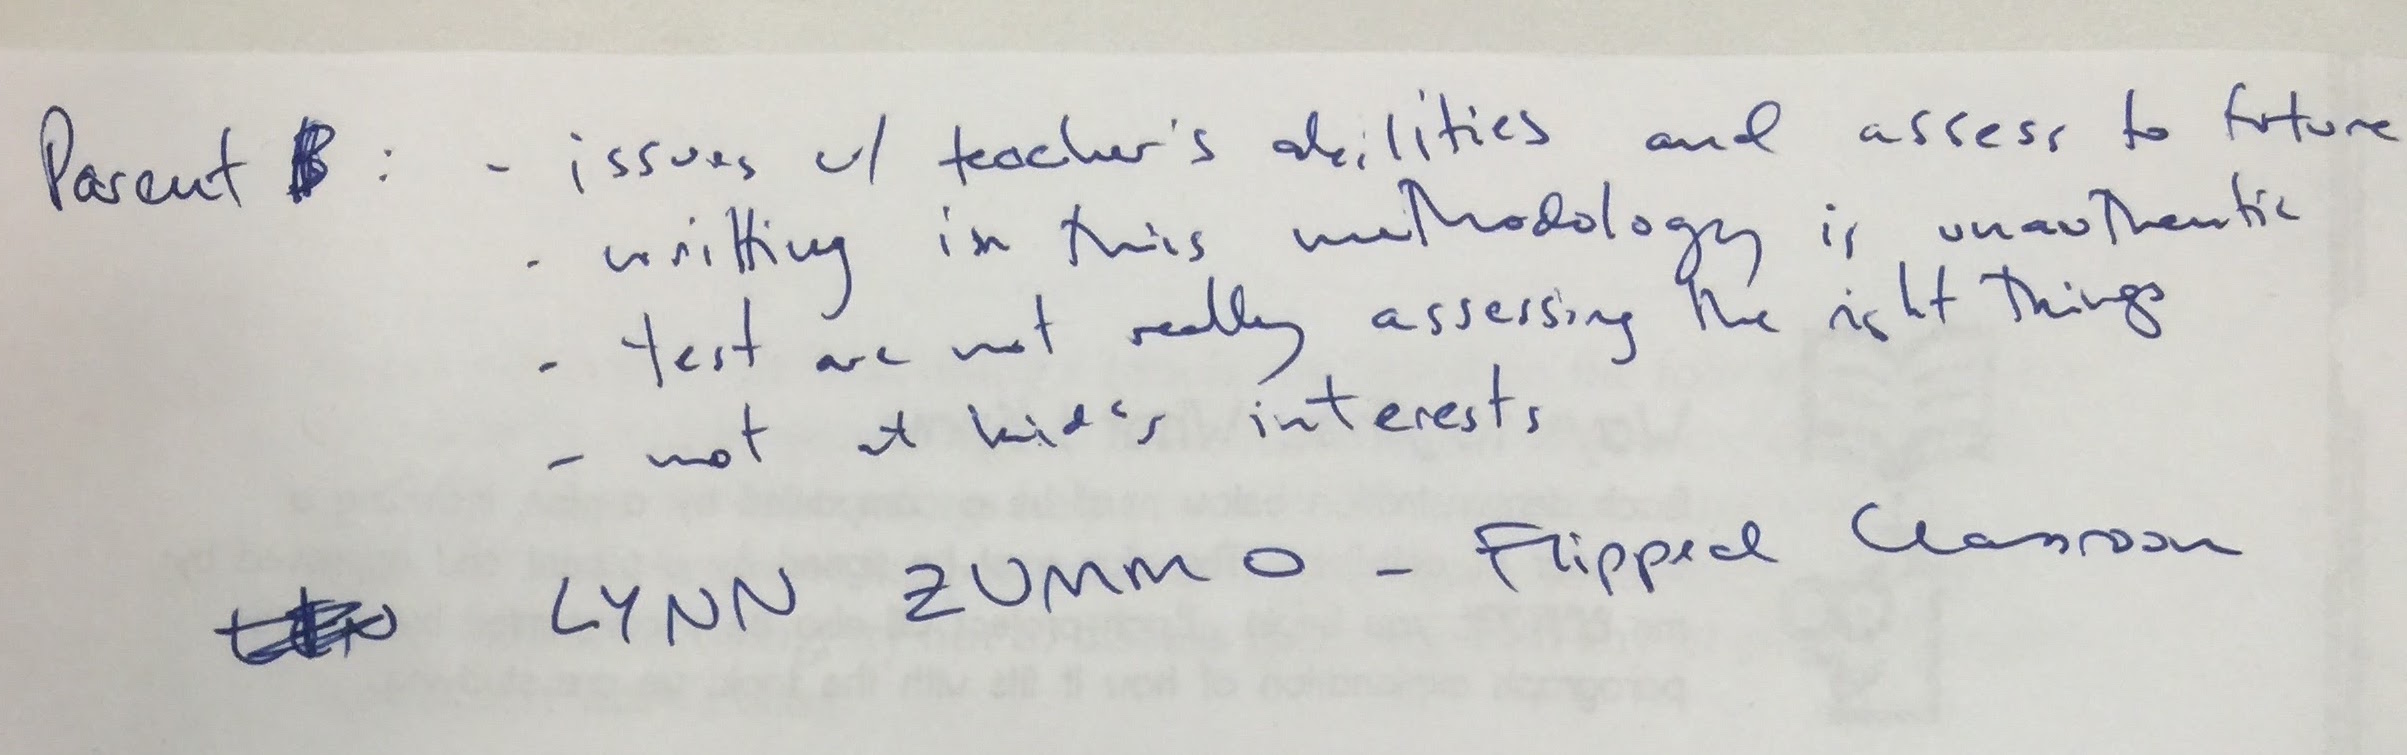 Parent B: - issues w/ teacher's abilities and assess to future
- writting in this methodology is unauthentic
- test are not really assessing the right things
- not at kid's interests
LYNN ZUMMO - Flipped Classroom